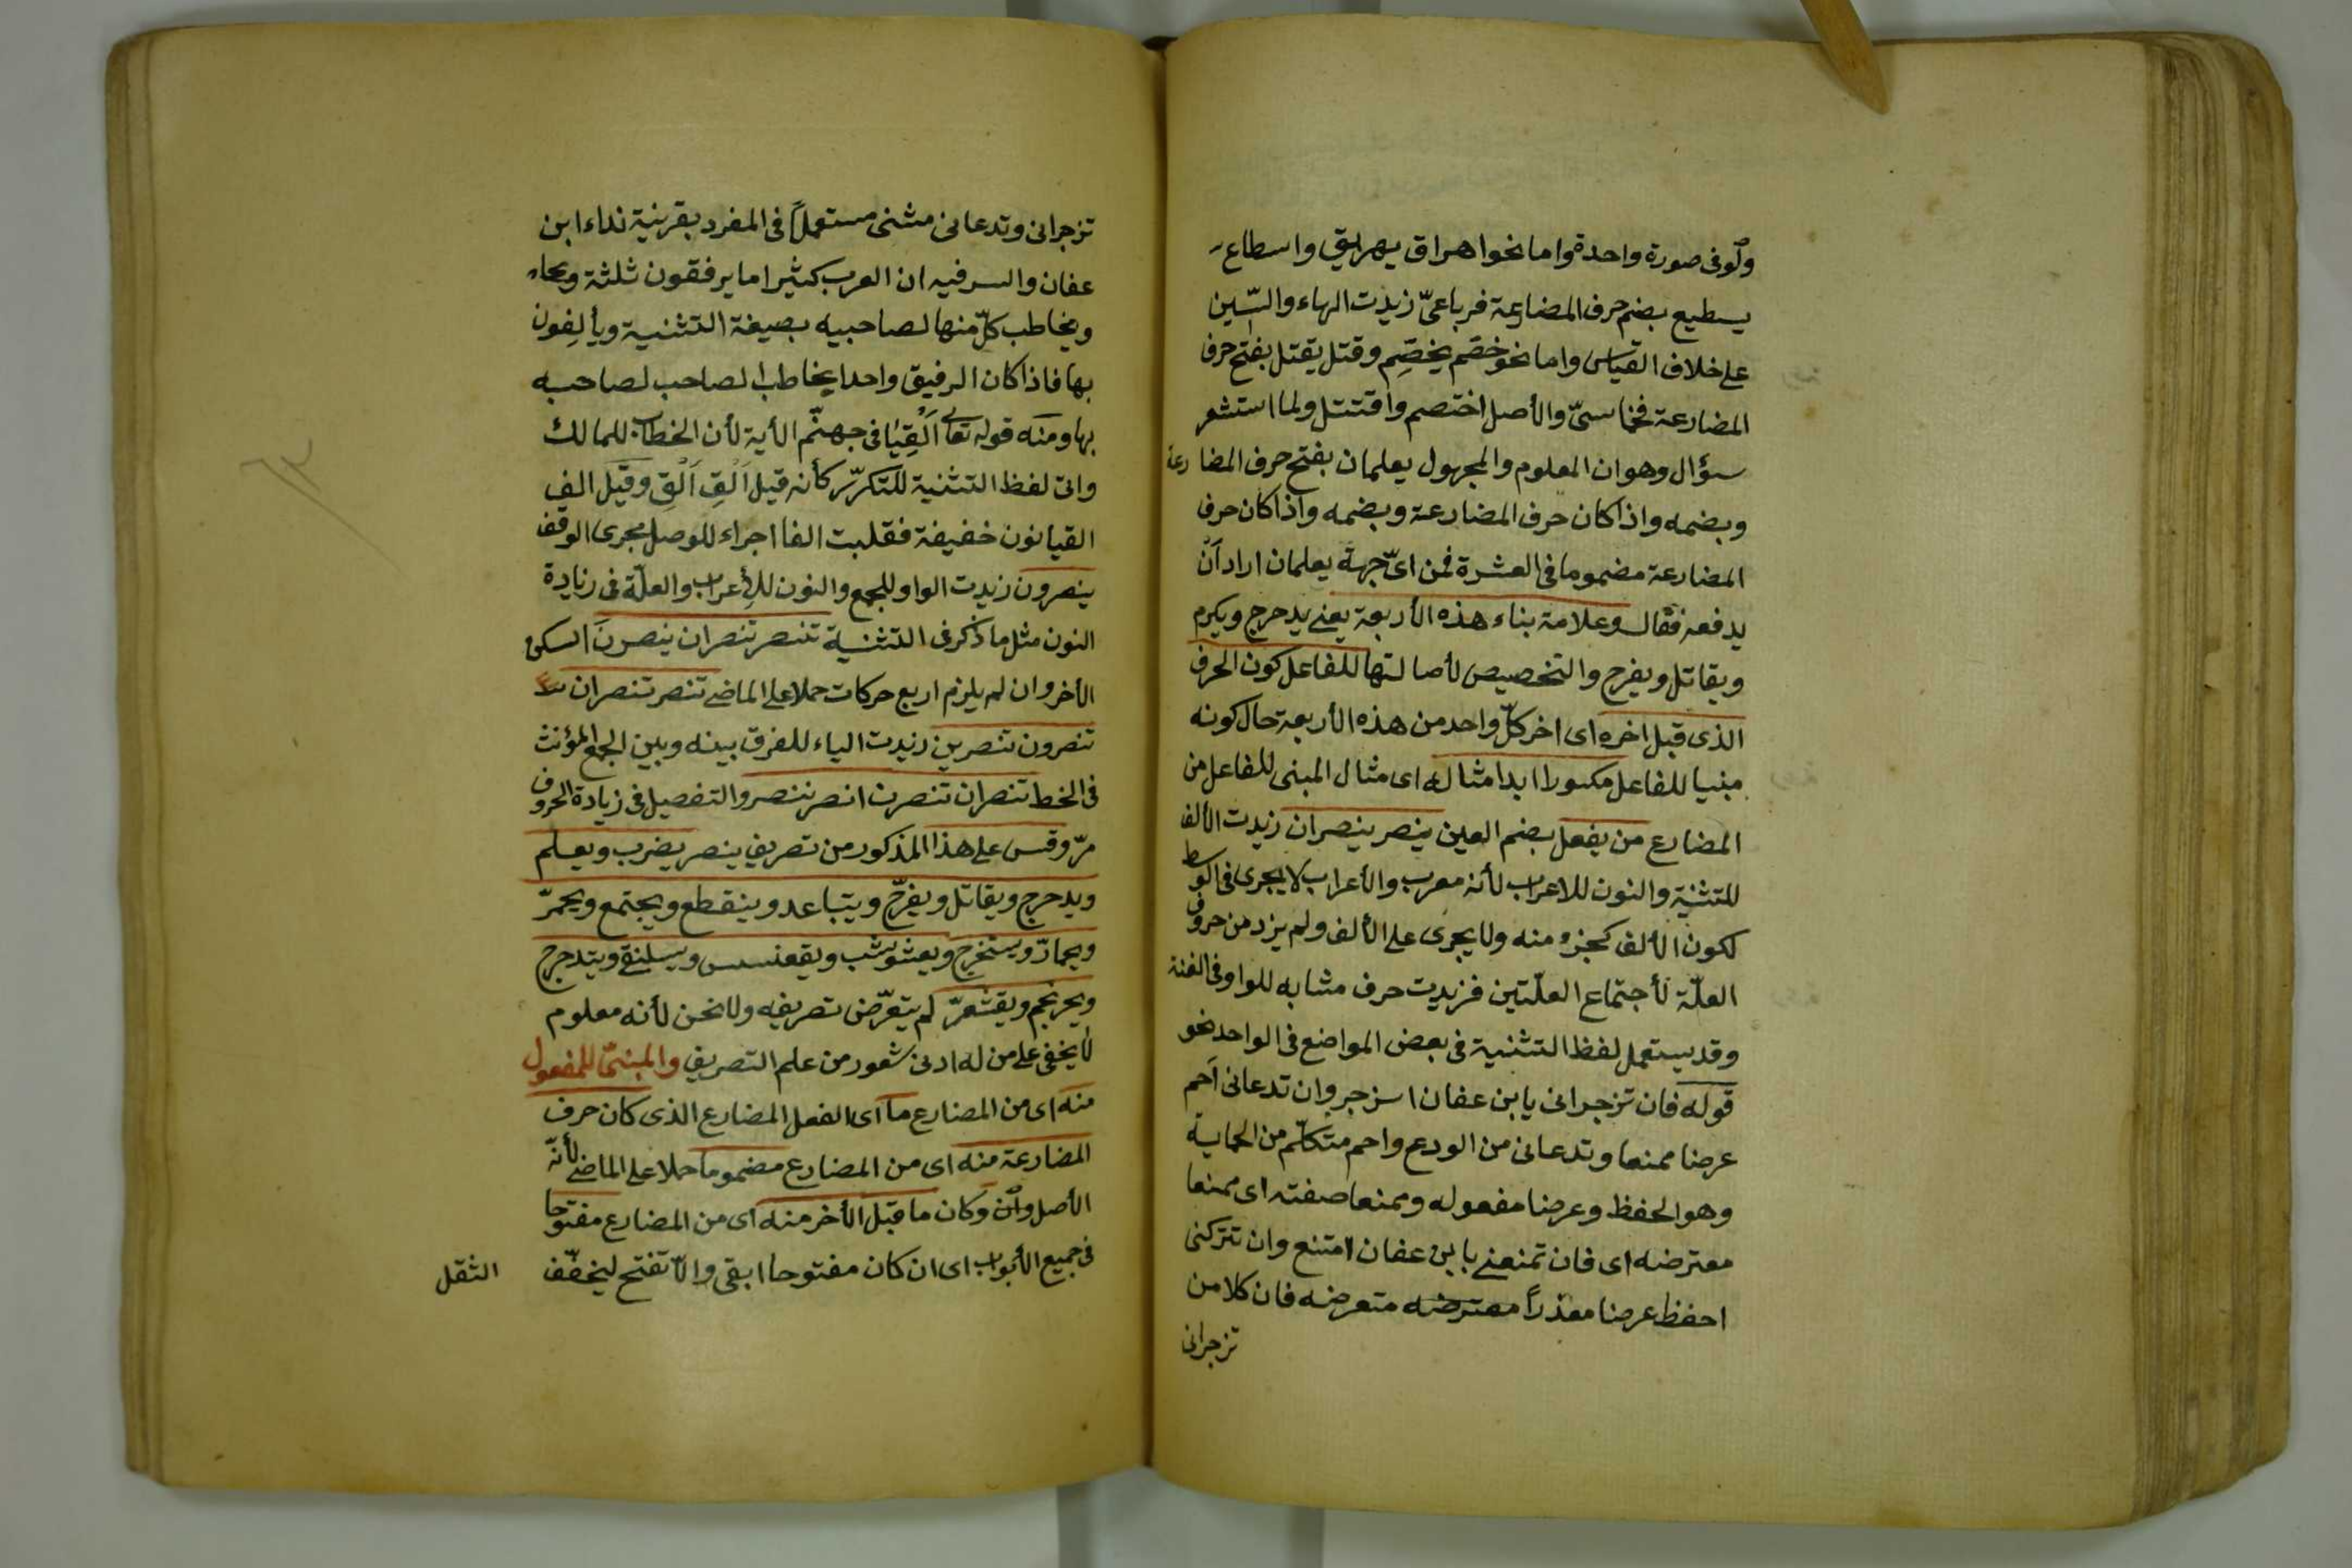 ولو فى صورة واحدة واما نحوا هراق يهريق واسطاع
يسطيع بضم حرف المضارعة فرباعىّ زيدت الهاء والسّين
على خلاف القياس واما نحو خصّم يخصّم وقتل يقتل بفتح حرف
المضارعة فخماسىّ والأصل اختصم واقتتل ولما استشعر
سؤال وهو ان المعلوم والمجهول يعلمان بفتح حرف المضارعة
وبضمه واذا كان حرف المضارعة وبضمه واذا كان حرف
المضارعة مضموما فى العشرة فمن اىّ جهة يعلمان اراد اَنْ
يدفعه فقال وعلامة بناء هذه الأربعة يعنى يدحرج ويكرم
ويقاتل ويفرح والتخصيص لأصالتها للفاعل كون الحرف
الذى قبل اخره اى اخر كلّ واحد من هذه الأربعة حال كونه
مبنيا للفاعل مكسورا ابدا مثاله اى مثال المبنى للفاعل من
المضارع من يفعل بضم العين ينصر ينصران زيدت الألف
للتثنية والنون للاعراب لأنه معرب والأعراب لا يجرى فى الوسط
لكون الألف كجزء منه ولا يجرى على الألف ولم يزد من حروف
العلّة لأجتماع العلّتين فزيدت حرف مشابه للواو فى الغنة
وقد يستعمل لفظ التثنية فى بعض المواضع فى الواحد نحو
قوله فان تزجرانى يا بن عفان انزجر وان تدعانى اَحم
عرضا ممنعا وتدعانى من الودع واحم متكلّم من الحماية
وهو الحفظ وعرضا مفعوله وممنعا صفته اى ممنعا
معترضه اى فان تمنعنى يا بن عفان امتنع وان تتركنى
احفظ عرضا معذراً معترضه متعرضه فان كلا من
تزجرانى
تزجرانى وتدعانى مثنى مستعملاً فى المفرد بقرينة نداء ابن
عفان والسر فيه ان العرب كثيرا ما يرفقون ثلثة
ويخاطب كلّ منها لصاحبيه بصيغة التثنية ويألِفون
بها فاذا كان الرفيق واحدا يخاطب الصاحب لصاحبه
بها ومنه قوله تعالى اَلْقِيَا فى جهنّم الأية لأن الخطاب للمالك
واتى لفظ التثنية للتكرّر كأنه قيل اَلْقِ اَلْقِ وقيل الف
القيا نون خفيفة فقلبت الفا اجراء للوصل مجرى الوقف
ينصرون زيدت الواو للجمع والنون للأعراب والعلّة فى زيادة
النون مثل ما ذكر فى التثنية تنصر تنصران ينصرنَ اسكن
الأخر وان لم يلزم اربع حركات حملا على الماضى تنصر تنصران
تنصرون تنصرين زيدت الياء للفرق بينه وبين الجمع المؤنث
فى الخط تنصران تنصرن انصر ننصر والتفصيل فى زيادة الحروف
مرّ وقس على هذا المذكور من تصريف ينصر يضرب ويعلم
ويدحرج ويقاتل ويفرّح ويتباعد وينقطع ويجتمع ويحمرّ
ويحمارّ ويستخرج ويعشوشب ويقعنسس ويسلنقى ويتدحرج
ويحرنجم ويقشعرّ لم يتعرّض تصريفه ولا نحن لأنه معلوم
لا يخفى على من له ادنى شعور من علم التصريف والمبنىّ للمفعول
منه اى من المضارع ما اى الفعل المضارع الذى كان حرف
المضارعة منه اى من المضارع مضموما حملا على الماضى لأنّه
الأصل وان وكان ما قبل الأخر منه اى من المضارع مفتوحا
فى جميع الأبواب اى ان كان مفتوحا ابقى والاّ تفتح ليخفّف
الثقل